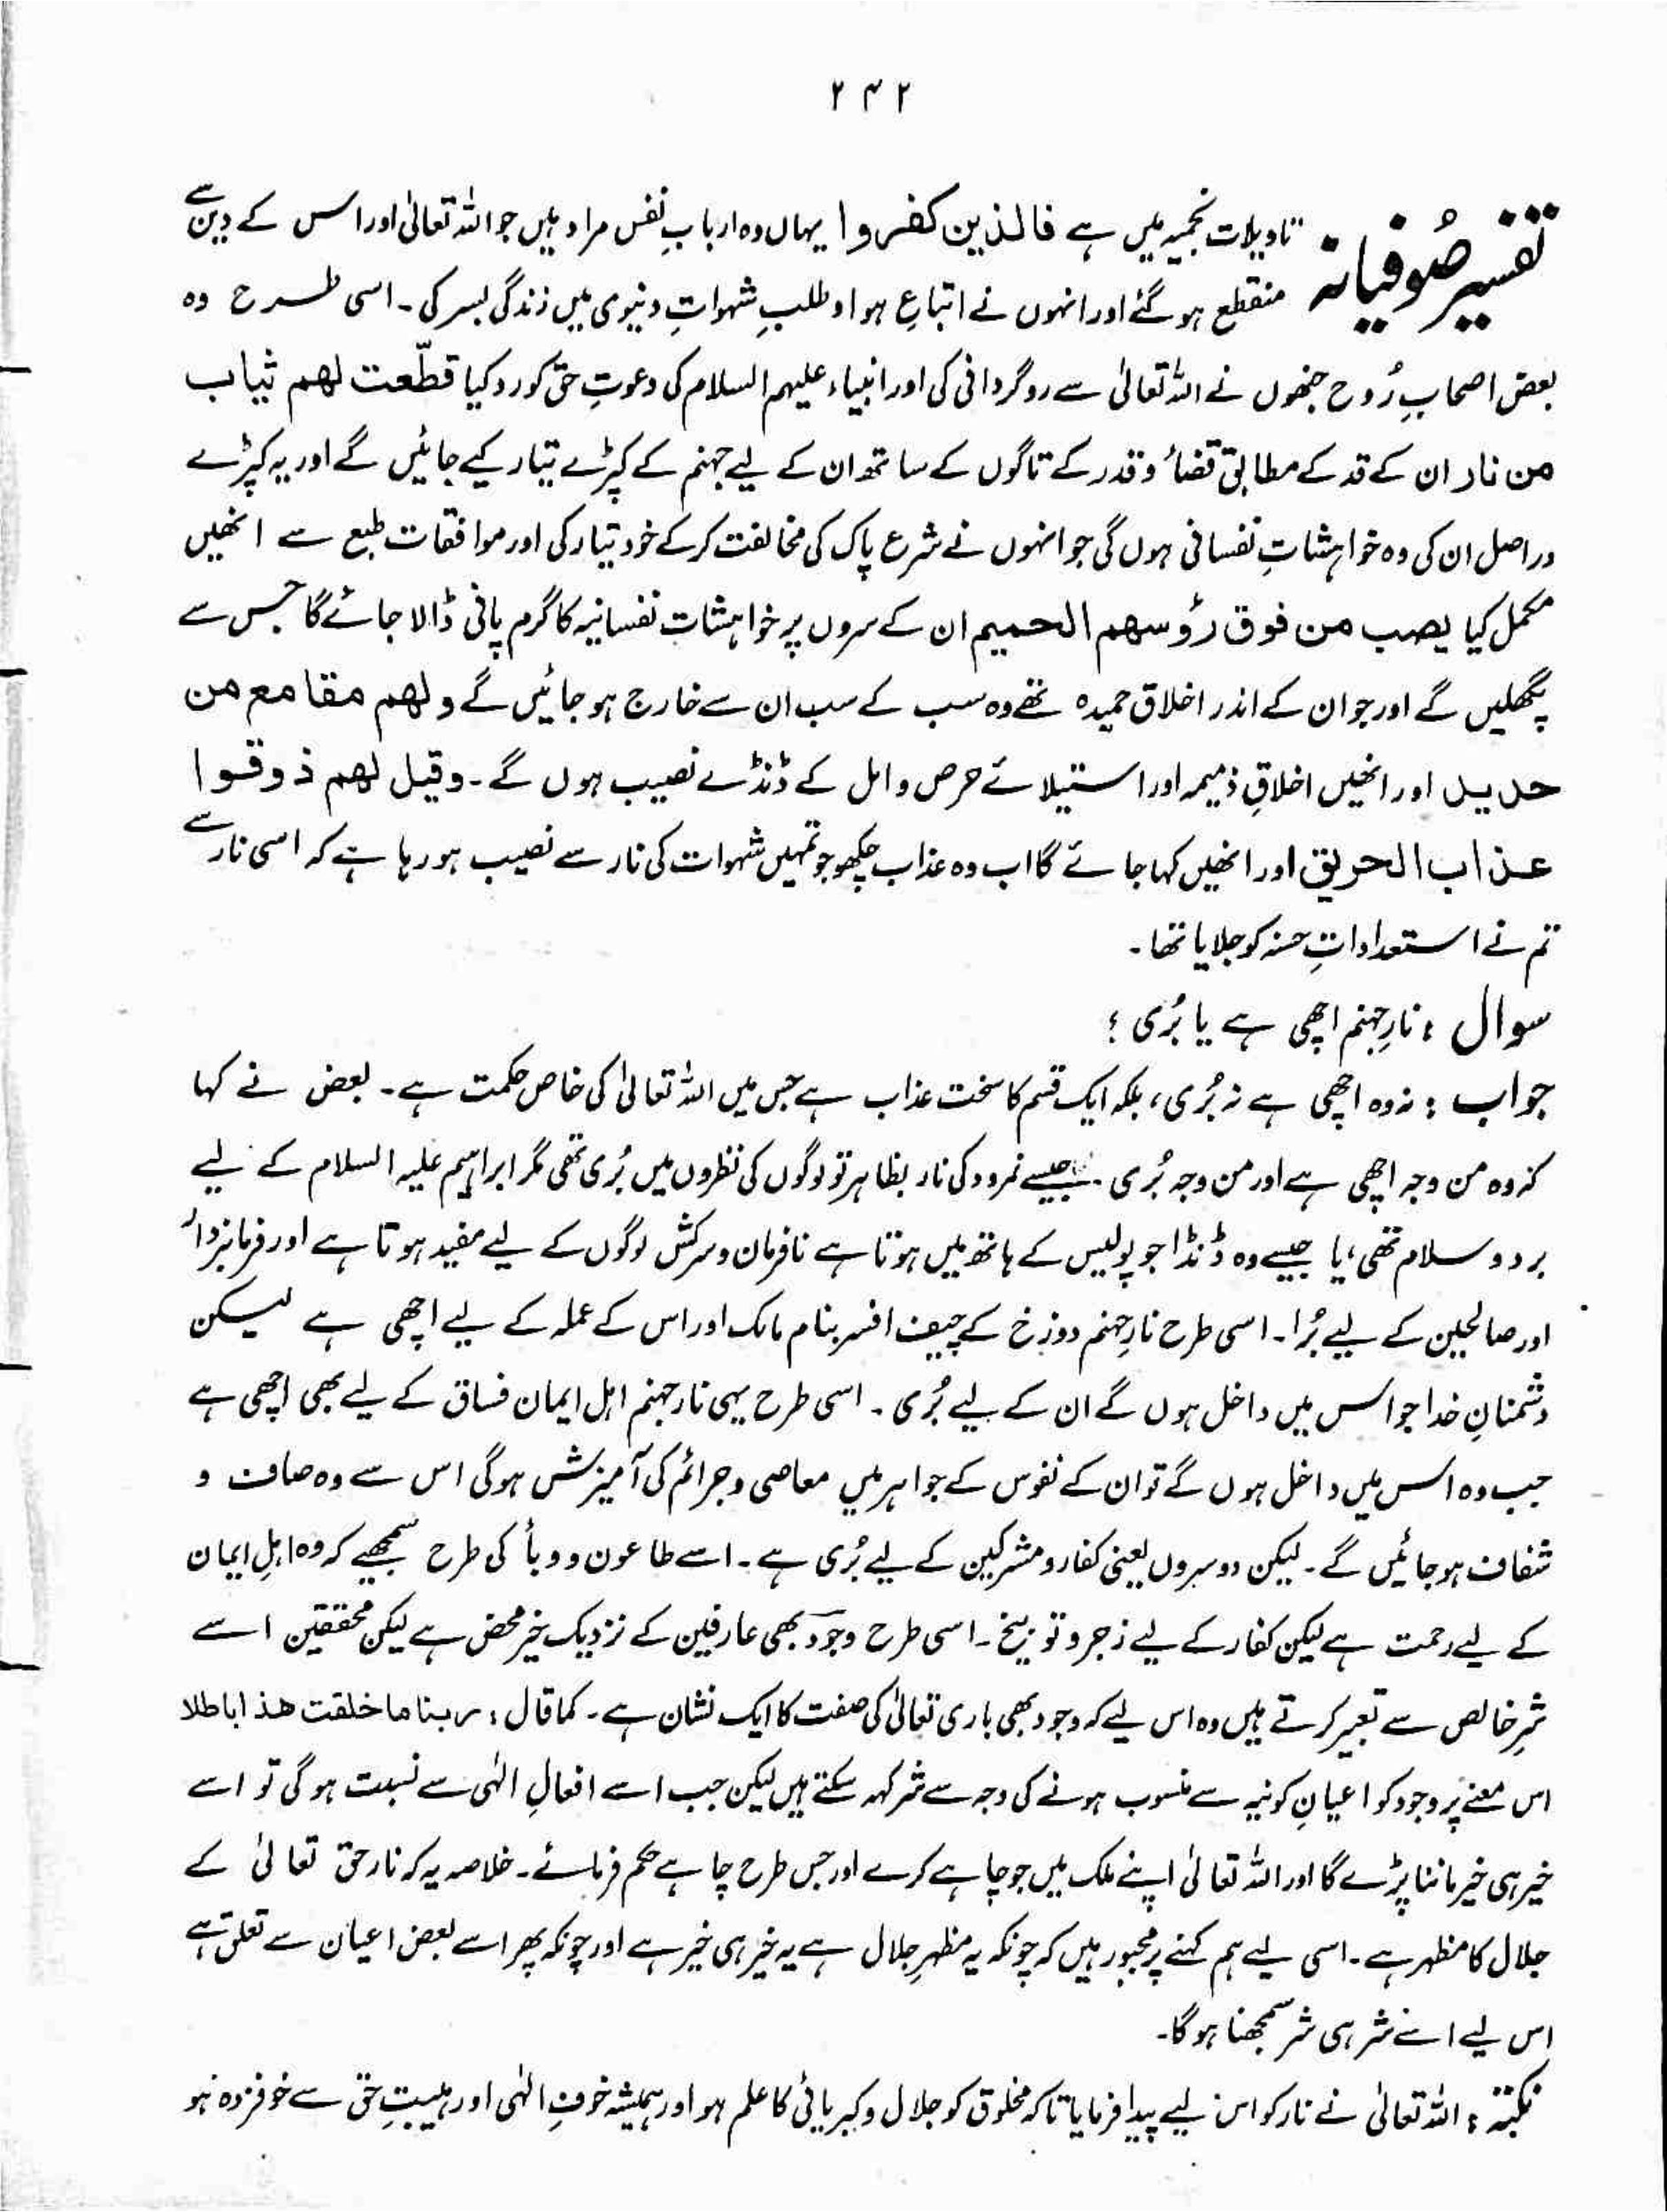 ۲۴۲
تفسیر صُوفیانہ تاویلات نجمیہ میں ہے فالذین کفروا یہاں وہ اربابِ نفس مراد ہیں جو اللہ تعالیٰ اور اس کے دین سے
منقطع ہو گئے اور انہوں نے اتباعِ ہوا و طلبِ شہواتِ دنیوی میں زندگی بسر کی۔ اسی طرح وہ
بعض اصحابِ رُوح جنھوں نے اللہ تعالیٰ سے روگردانی کی اور انبیاء علیہم السلام کی دعوتِ حق کو رد کیا قطّعت لھم ثیاب
من نار ان کے قد کے مطابق قضأ و قدر کے تاگوں کے ساتھ ان کے لیے جہنم کے کپڑے تیار کیے جائیں گے اور یہ کپڑے
دراصل ان کی وہ خواہشاتِ نفسانی ہوں گی جو انہوں نے شرع پاک کی مخالفت کرکے خود تیار کی اور موافقات طبع سے انھیں
مکمل کیا یصب من فوق رؤسھم الحمیم ان کے سروں پر خواہشات نفسانیہ کا گرم پانی ڈالا جائے گا جس سے
پگھلیں گے اور جو ان کے اندر اخلاق حمیدہ تھے وہ سب کے سب ان سے خارج ہو جائیں گے ولھم مقامع من
حدید اور انھیں اخلاقِ ذمیمہ اور استیلائے حرص و امل کے ڈنڈے نصیب ہوں گے۔ وقیل لھم ذوقوا
عذاب الحریق اور انھیں کہا جائے گا اب وہ عذاب چکھو جو تمہیں شہوات کی نار سے نصیب ہو رہا ہے کہ اسی نار سے
تم نے استعداداتِ حسنہ کو جلایا تھا۔
سوال : نارِ جہنم اچھی ہے یا بُری ؟
جواب : نہ وہ اچھی ہے نہ بُری، بلکہ ایک قسم کا سخت عذاب ہے جس میں اللہ تعالیٰ کی خاص حکمت ہے۔ بعض نے کہا
کہ وہ من وجہ اچھی ہے اور من وجہ بُری۔ جیسے نمرود کی نار بظاہر تو لوگوں کی نظروں میں بُری تھی مگر ابراہیم علیہ السلام کے لیے
برد و سلام تھی، یا جیسے وہ ڈنڈا جو پولیس کے ہاتھ میں ہوتا ہے نافرمان و سرکش لوگوں کے لیے مفید ہوتا ہے اور فرمانبردار
اور صالحین کے لیے بُرا۔ اسی طرح نارِ جہنم دوزخ کے چیف افسر بنام مالک اور اس کے عملہ کے لیے اچھی ہے لیکن
دشمنانِ خدا جو اس میں داخل ہوں گے ان کے لیے بُری۔ اسی طرح یہی نار جہنم اہل ایمان فساق کے لیے بھی اچھی ہے
جب وہ اس میں داخل ہوں گے تو ان کے نفوس کے جواہر میں معاصی و جرائم کی آمیزش ہوگی اس سے وہ صاف و
شفاف ہو جائیں گے۔ لیکن دوسروں یعنی کفار و مشرکین کے لیے بُری ہے۔ اسے طاعون و وبأ کی طرح سمجھیے کہ وہ اہلِ ایمان
کے لیے رحمت ہے لیکن کفار کے لیے زجر و توبیخ۔ اسی طرح وجود بھی عارفین کے نزدیک خیر محض ہے لیکن محققین اسے
شرِ خالص سے تعبیر کرتے ہیں وہ اس لیے کہ وجود بھی باری تعالیٰ کی صفت کا ایک نشان ہے۔ کما قال : ربنا ما خلقت ھذا باطلا
اس معنے پر وجود کو اعیانِ کونیہ سے منسوب ہونے کی وجہ سے شر کہہ سکتے ہیں لیکن جب اسے افعالِ الٰہی سے نسبت ہوگی تو اسے
خیر ہی خیر ماننا پڑے گا اور اللہ تعالیٰ اپنے ملک میں جو چاہے کرے اور جس طرح چاہے حکم فرمائے۔ خلاصہ یہ کہ نار حق تعالیٰ کے
جلال کا مظہر ہے۔ اسی لیے ہم کہنے پر مجبور ہیں کہ چونکہ یہ مظہرِ جلال ہے یہ خیر ہی خیر ہے اور چونکہ پھر اسے بعض اعیان سے تعلق ہے
اس لیے اسے شر ہی شر سمجھنا ہوگا۔
نکتہ : اللہ تعالیٰ نے نار کو اس لیے پیدا فرمایا تاکہ مخلوق کو جلال و کبریائی کا علم ہو اور ہمیشہ خوفِ الٰہی اور ہیبتِ حق سے خوفزدہ ہو